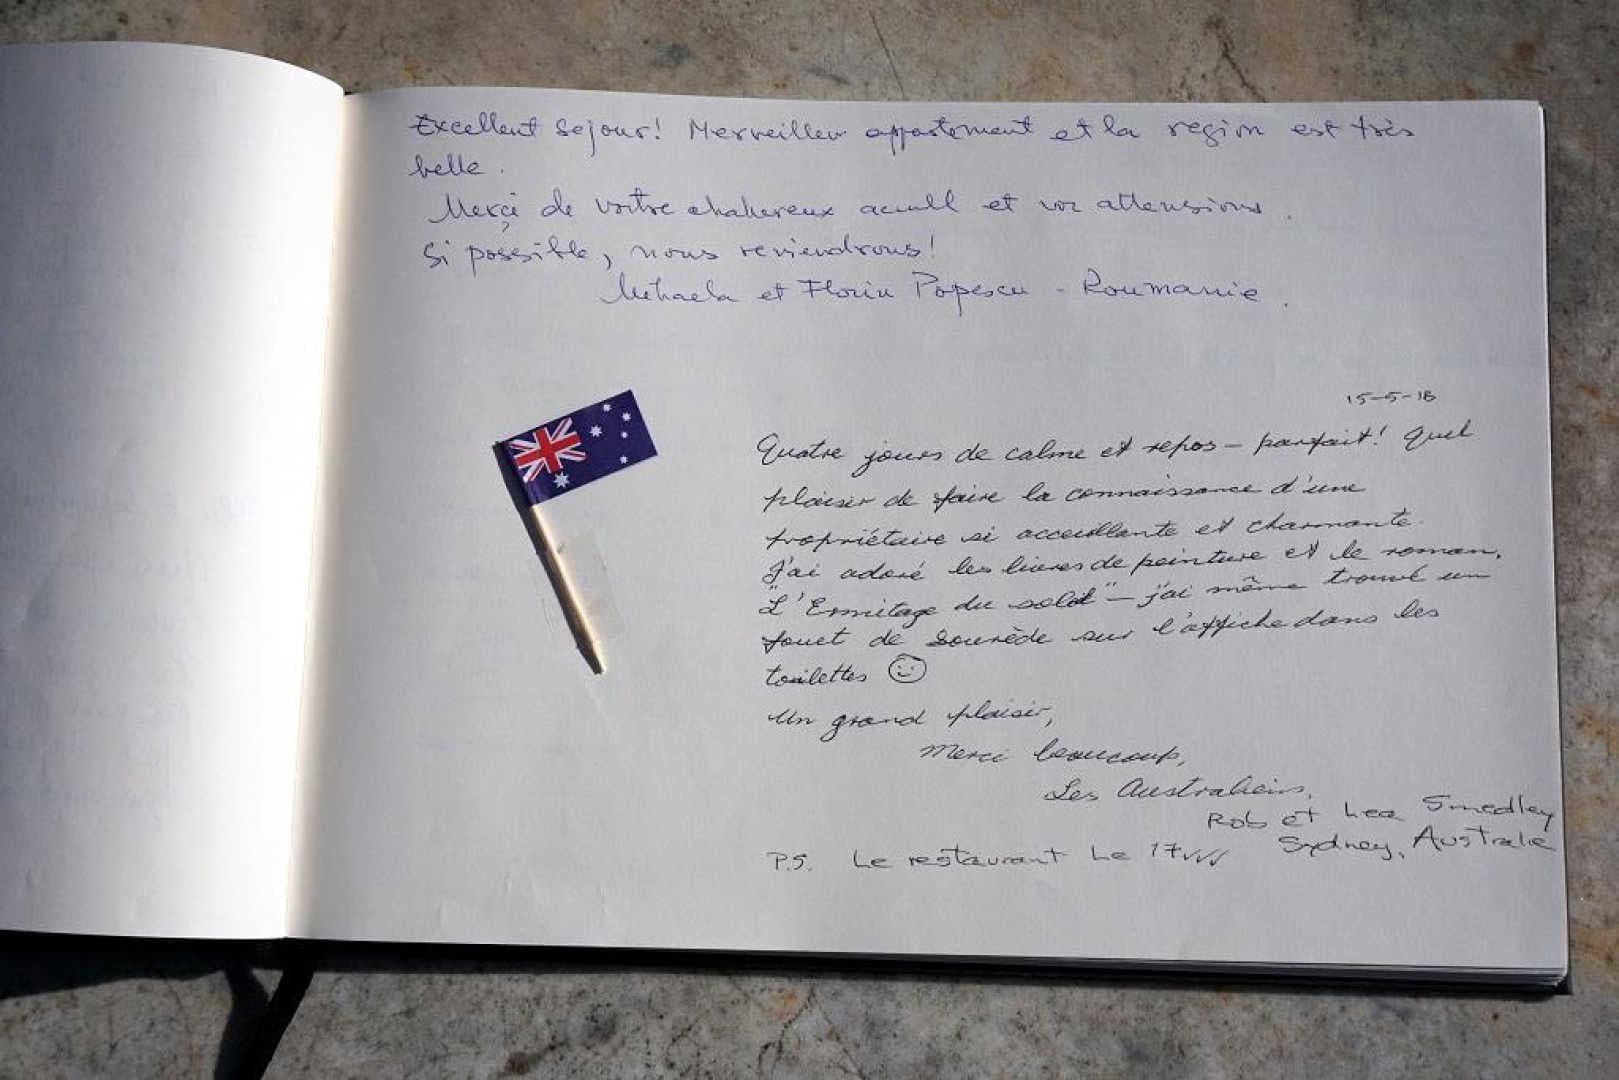 Excellent sejour! Merveilleu appartement et la region est très
belle.
Merçi de votre chalereux acuill et vos attensions.
Si possible, nous reviendrons!
Mihaela et Florin Popescu - Roumanie.
15-5-18
Quatre jours de calme et repos — parfait! Quel
plaisir de faire la connaissance d'une
propriétaire si acceuillante et charmante.
J'ai adoré les livres de peinture et le roman,
"L'Ermitage du soleil" — j'ai même trouvé un
fouet de Sourède sur l'affiche dans les
toilettes
Un grand plaisir,
Merci beaucoup,
Les Australiens,
Rob et Lea Smedley
Sydney, Australie
P.S. Le restaurant Le 17